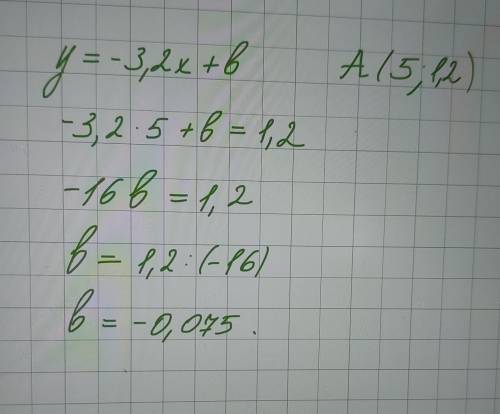 y = -3,2x + b A (5; 1,2)
-3,2 · 5 + b = 1,2
-16 b = 1,2
b = 1,2 : (-16)
b = -0,075.